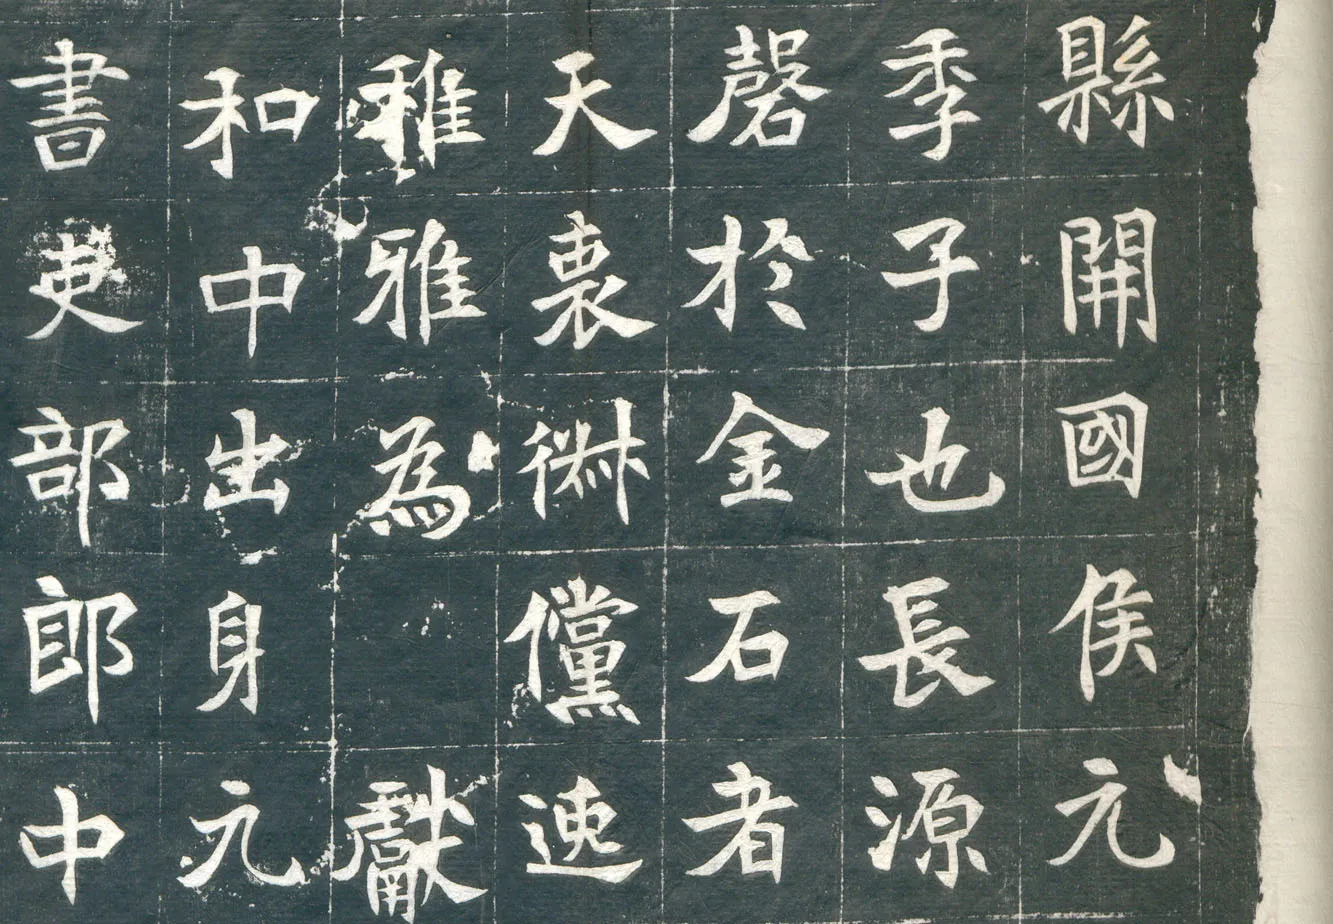 縣開國侯元
季子也長源
磬於金石者
天衷儻速
雅雅為獻
和中出身元
書吏部郎中